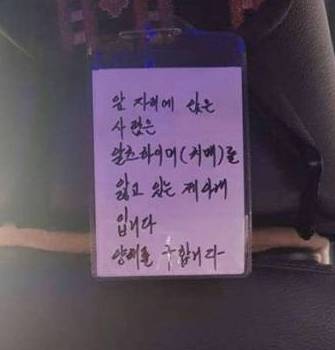 앞 자리에 앉은
사람은
알츠하이머(치매)를
앓고 있는 제 아내
입니다
양해를 구합니다